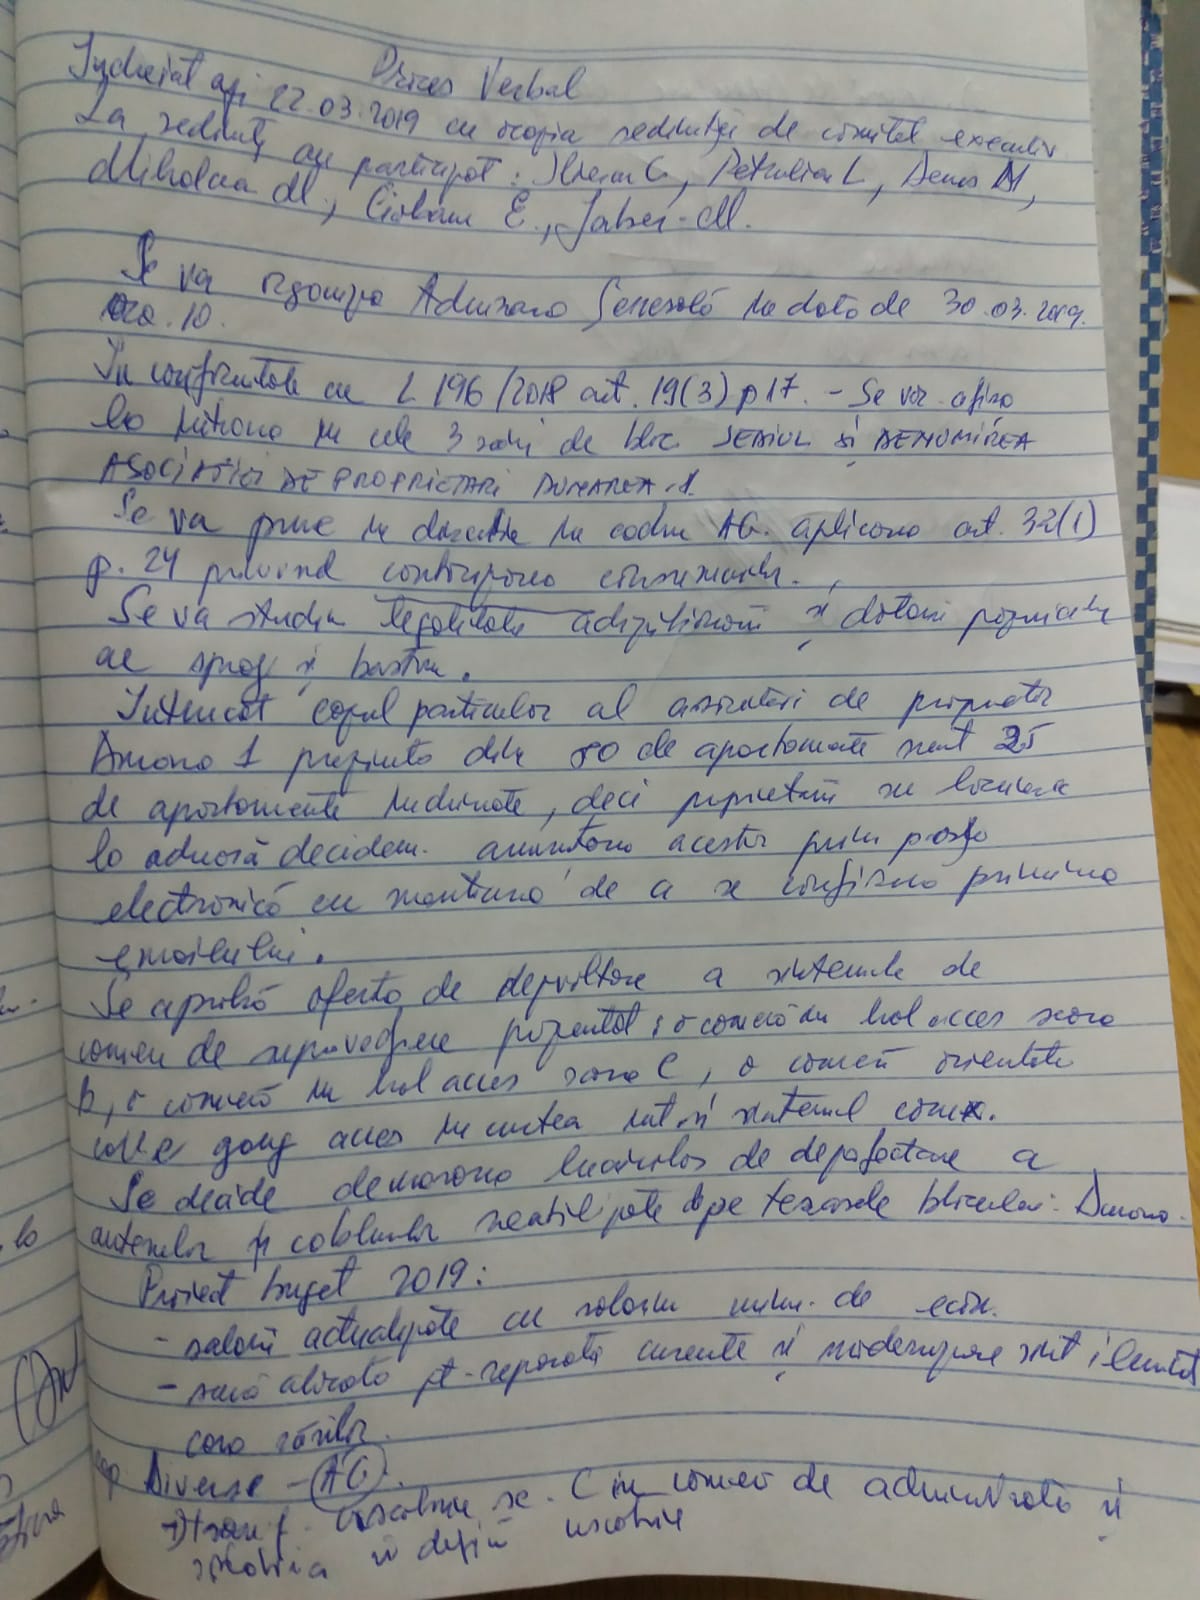 Proces Verbal
Încheiat azi 22.03.2019 cu ocazia sedintei de comitet executiv
La sedință au participat: C, Petrulian L, M,
M., Ciobanu E., Jaber M.
Se va organiza Adunarea Generală în data de 30.03.2019.
ora 10.
În conformitate cu L 196/2018 art. 19(3) p 17. – Se va afisa
la intrarea în cele 3 scări de bloc SEDIUL și DENUMIREA
ASOCIATIEI DE PROPRIETARI DUNAREA 1
Se va pune în discutie în cadrul AG. aplicarea art. 32(1)
p. 24 privind contorizarea consumurilor.
Se va studia legalitatea achizitionarii și dotarii
de și
Întrucat cazul particular al asociatiei de proprietari
Dunarea 1 prezinta din 50 de apartamente sunt 25
de apartamente închiriate, deci proprietarii nu locuiesc
la adresă decidem anuntarea acestor prin posta
electronică cu mentiunea de a se confirma primirea
emailului.
Se aprobă oferta de dezvoltare a sistemului de
camere de supraveghere prezentat: o cameră în hol acces scara
B, o cameră în hol acces scara C, o cameră orientata
către gang acces în curtea int. și sistemul conex.
Se decide demararea lucrarilor de dezafectare a
antenelor și cablurilor neutilizate de pe terasele blocului Dunarea.
Proiect buget 2019:
- salarii actualizate cu salariu minim de econ.
- sumă alocata pt. reparatii curente și modernizare int iluminat
casa scărilor.
cap Diverse – AG.
→ transf. uscatorie sc. C în cameră de administratie și
în uscatorie